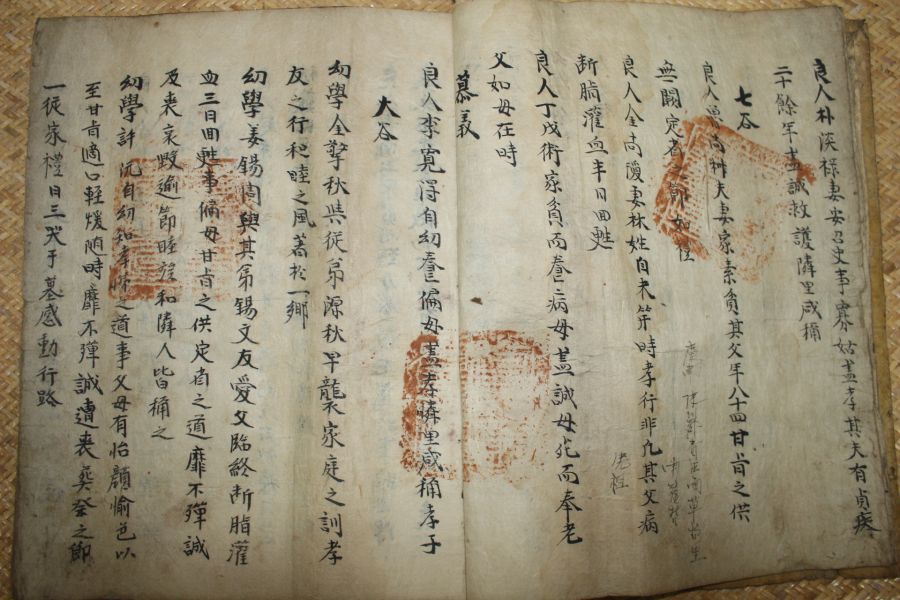 良人朴淡祿妻安召史事寡姑盡孝其夫有貞疾
二十餘年盡誠救護隣里咸稱
七谷
良人 夫妻家素貧其父年八十四甘旨之供
無闕定省之節如
良人全尚 妻林姓自未笄時孝行非凡其父病
斷脂灌血半日回甦
良人丁戊術家貧而養病母盡誠母死而奉老
父如母在時
慕義
良人李寬得自幼養偏母盡孝憐里咸稱孝子
大谷
幼學全擎秋與從弟源秋早襲家庭之訓孝
友之行和睦之風著於一鄉
幼學姜錫周與其弟錫文友愛父臨終斷脂灌
血三日回甦事偏母甘旨之供定省之道靡不殫誠
及喪哀毀逾節睦族和隣人皆稱之
幼學許沅自幼知孝悌之道事父母有怡顏愉色以
至甘旨適口輕煖隨時靡不殫誠遭喪葬祭之節
一從家禮日三哭于墓感動行路